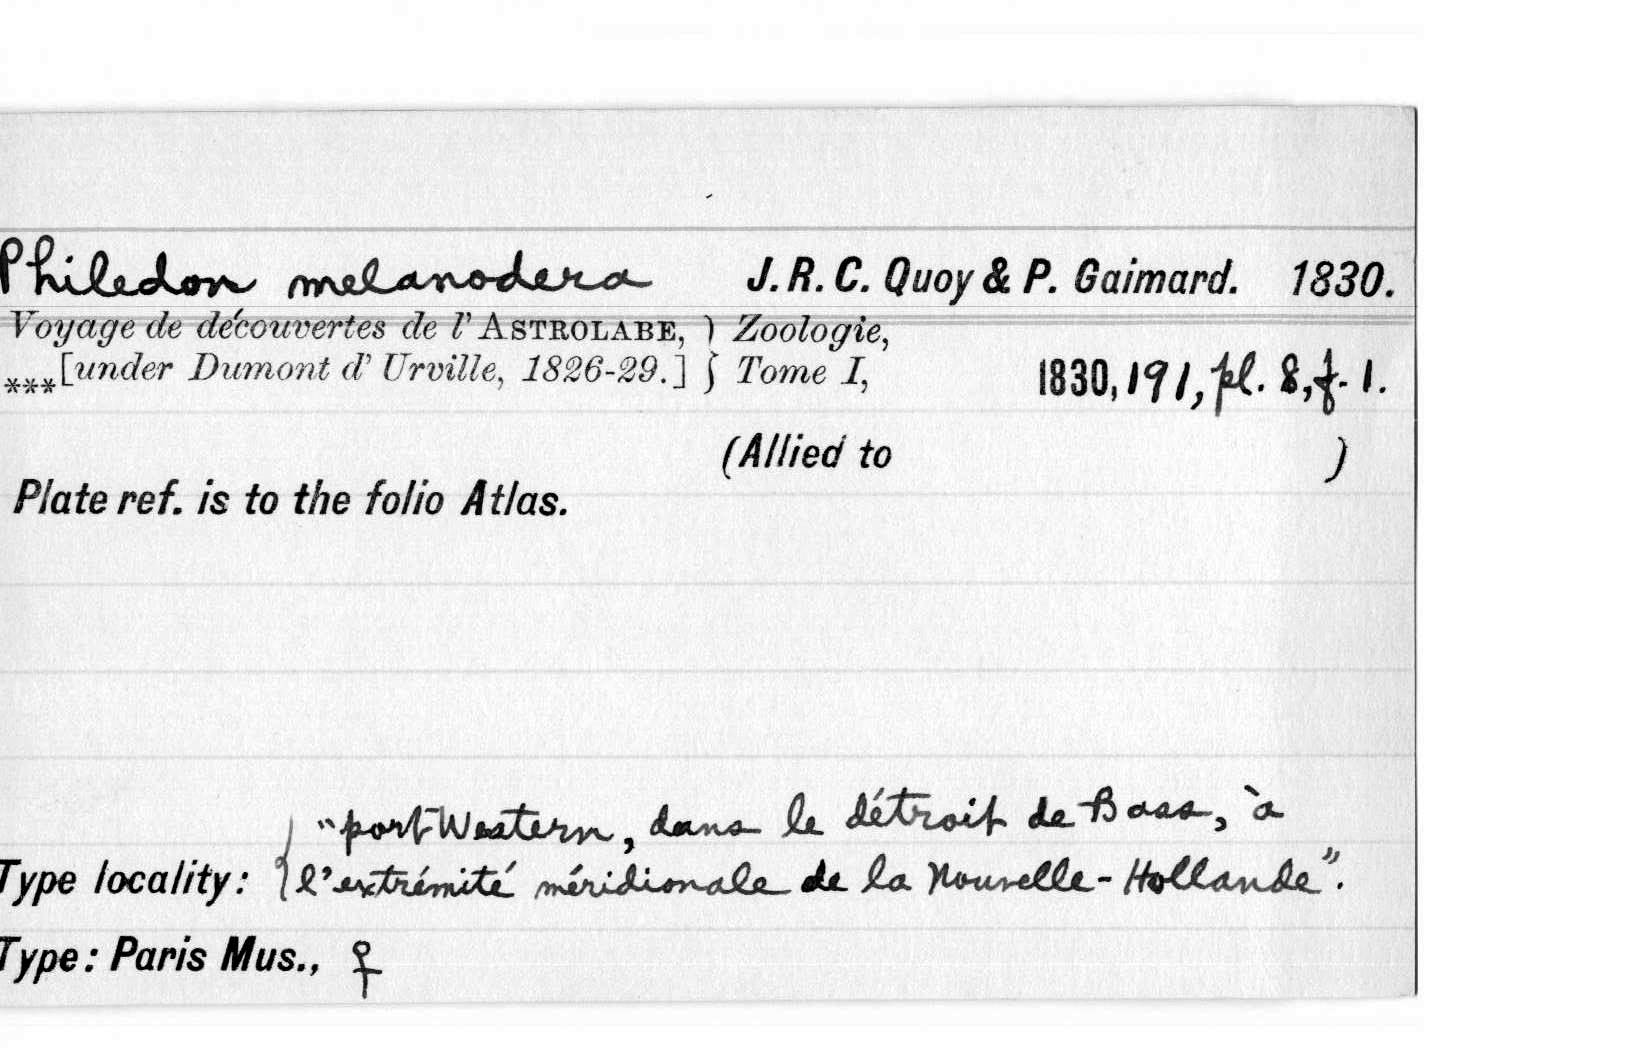 Philedon melanodera J. R. C. Quoy & P. Gaimard. 1830.
Voyage de découvertes de l' ASTROLABE, } Zoologie,
***[under Dumont d' Urville, 1826-29.] } Tome I, 1830, 191, pl. 8, f. 1.
(Allied to )
Plate ref. is to the folio Atlas.
"port Western, dans le détroit de Bass, à
Type locality: { l'extrémité méridionale de la Nouvelle-Hollande".
Type: Paris Mus., ♀